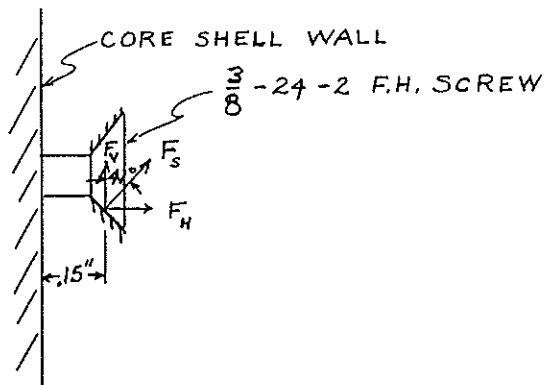 CORE SHELL WALL
3/8 - 24 - 2 F.H. SCREW
F_V
F_S
F_H
.15"